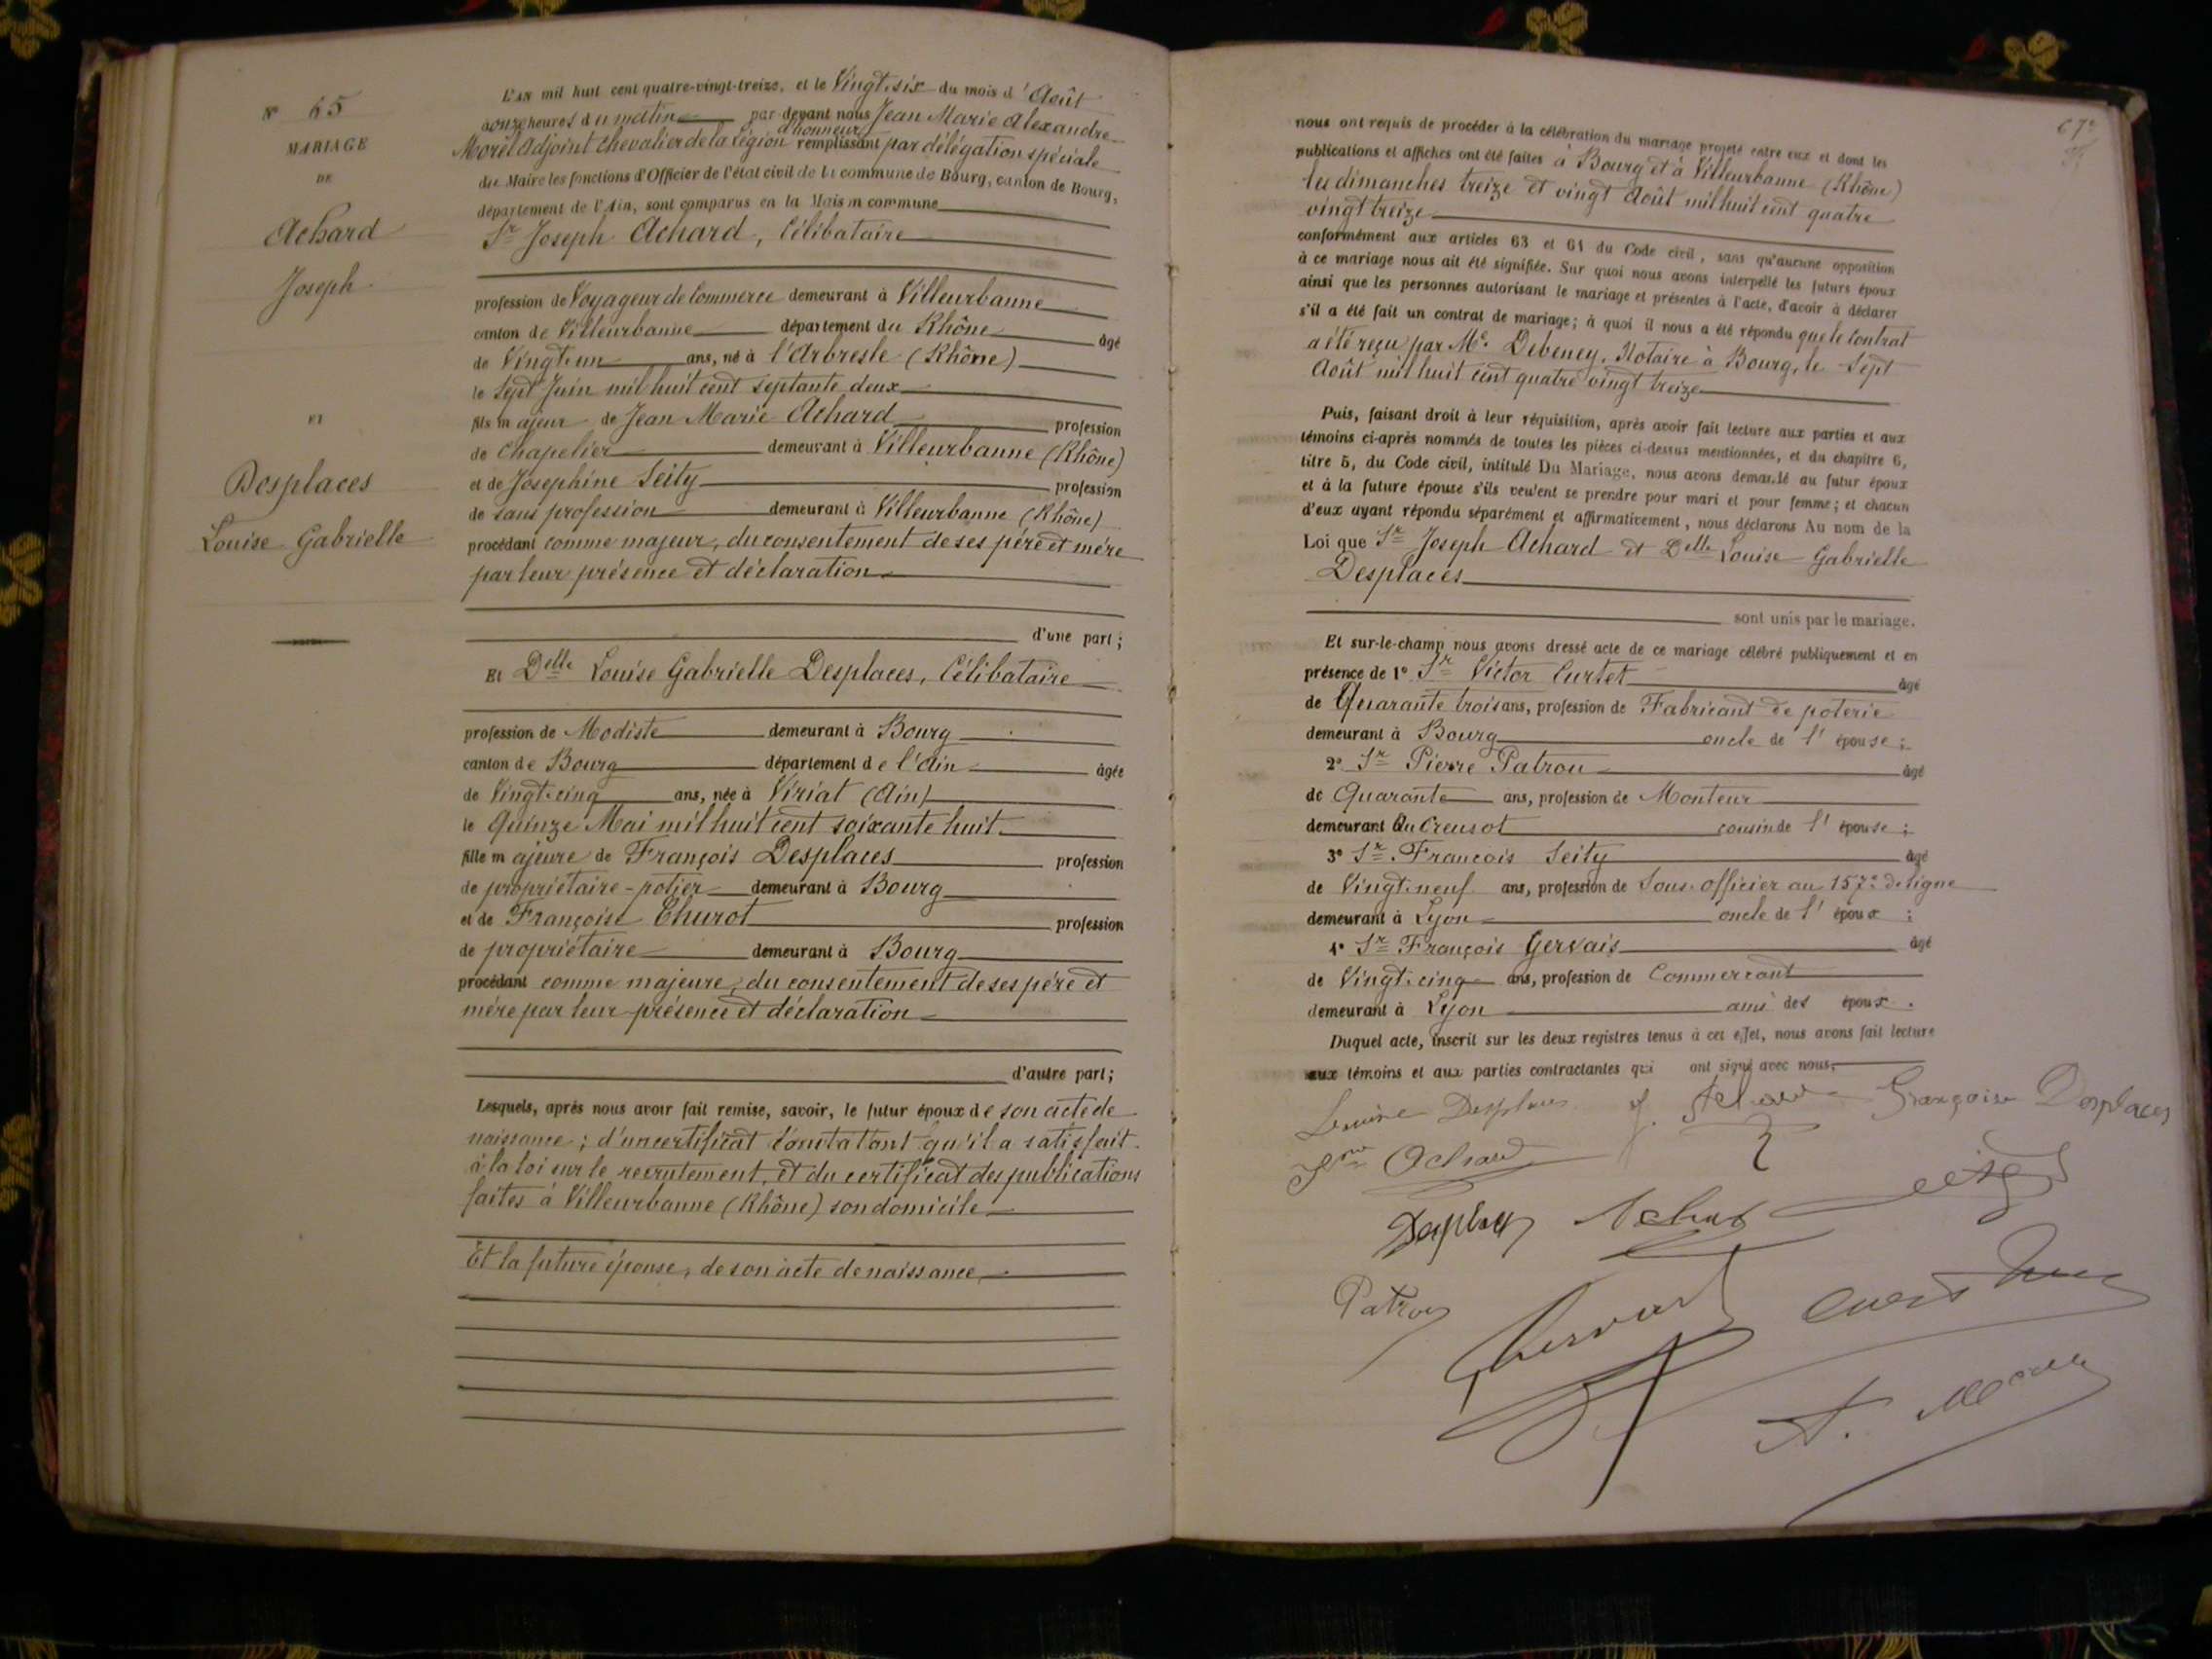 N° 65
MARIAGE
DE
Achard
Joseph
ET
Desplaces
Louise Gabrielle
L'AN mil huit cent quatre-vingt-treize, et le Vingt-six du mois d'Août
onze heures du matin par devant nous Jean Marie Alexandre
Morel Adjoint Chevalier de la Légion d'honneur remplissant par délégation spéciale
du Maire les fonctions d'Officier de l'état civil de la commune de Bourg, canton de Bourg,
département de l'Ain, sont comparus en la Maison commune
Sr Joseph Achard, Célibataire
profession de Voyageur de Commerce demeurant à Villeurbanne
canton de Villeurbanne département du Rhône âgé
de Vingt-un ans, né à l'Arbresle (Rhône)
le Sept Juin mil huit cent septante deux
fils majeur de Jean Marie Achard profession
de Chapelier demeurant à Villeurbanne (Rhône)
et de Joséphine Seity profession
de sans profession demeurant à Villeurbanne (Rhône)
procédant comme majeur, du consentement de ses père et mère
par leur présence et déclaration
d'une part;
Et Delle Louise Gabrielle Desplaces, Célibataire
profession de Modiste demeurant à Bourg
canton de Bourg département de l'Ain âgée
de Vingt-cinq ans, née à Viriat (Ain)
le Quinze Mai mil huit cent soixante huit
fille majeure de François Desplaces profession
de propriétaire-potier demeurant à Bourg
et de Françoise Churot profession
de propriétaire demeurant à Bourg
procédant comme majeure, du consentement de ses père et
mère par leur présence et déclaration
d'autre part;
Lesquels, après nous avoir fait remise, savoir, le futur époux de son acte de
naissance; d'un certificat constatant qu'il a satisfait
à la loi sur le recrutement, et du certificat des publications
faites à Villeurbanne (Rhône) son domicile
Et la future épouse, de son acte de naissance
67e
nous ont requis de procéder à la célébration du mariage projeté entre eux et dont les
publications et affiches ont été faites à Bourg et à Villeurbanne (Rhône)
les dimanches treize et vingt Août mil huit cent quatre
vingt treize
conformément aux articles 63 et 64 du Code civil, sans qu'aucune opposition
à ce mariage nous ait été signifiée. Sur quoi nous avons interpellé les futurs époux
ainsi que les personnes autorisant le mariage et présentes à l'acte, d'avoir à déclarer
s'il a été fait un contrat de mariage; à quoi il nous a été répondu que le Contrat
a été reçu par Me. Debeney, Notaire à Bourg, le Sept
Août mil huit cent quatre vingt treize
Puis, faisant droit à leur réquisition, après avoir fait lecture aux parties et aux
témoins ci-après nommés de toutes les pièces ci-dessus mentionnées, et du chapitre 6,
titre 5, du Code civil, intitulé Du Mariage, nous avons demandé au futur époux
et à la future épouse s'ils veulent se prendre pour mari et pour femme; et chacun
d'eux ayant répondu séparément et affirmativement, nous déclarons Au nom de la
Loi que Sr Joseph Achard et Delle Louise Gabrielle
Desplaces
sont unis par le mariage.
Et sur-le-champ nous avons dressé acte de ce mariage célébré publiquement et en
présence de 1° Sr Victor Curtet âgé
de Quarante trois ans, profession de Fabricant de poterie
demeurant à Bourg oncle de l'épouse;
2° Sr Pierre Patrou âgé
de Quarante ans, profession de Monteur
demeurant Au Creusot cousin de l'épouse;
3° Sr François Seity âgé
de Vingt-neuf ans, profession de Sous-officier au 157e de ligne
demeurant à Lyon oncle de l'époux;
4° Sr François Gervais âgé
de Vingt-cinq ans, profession de Commerçant
demeurant à Lyon ami des époux.
Duquel acte, inscrit sur les deux registres tenus à cet effet, nous avons fait lecture
aux témoins et aux parties contractantes qui ont signé avec nous.
Louise Desplaces J. Achard Françoise Desplaces
Achard
Desplaces Achard Seity
Patrou Gervais
A. Morel